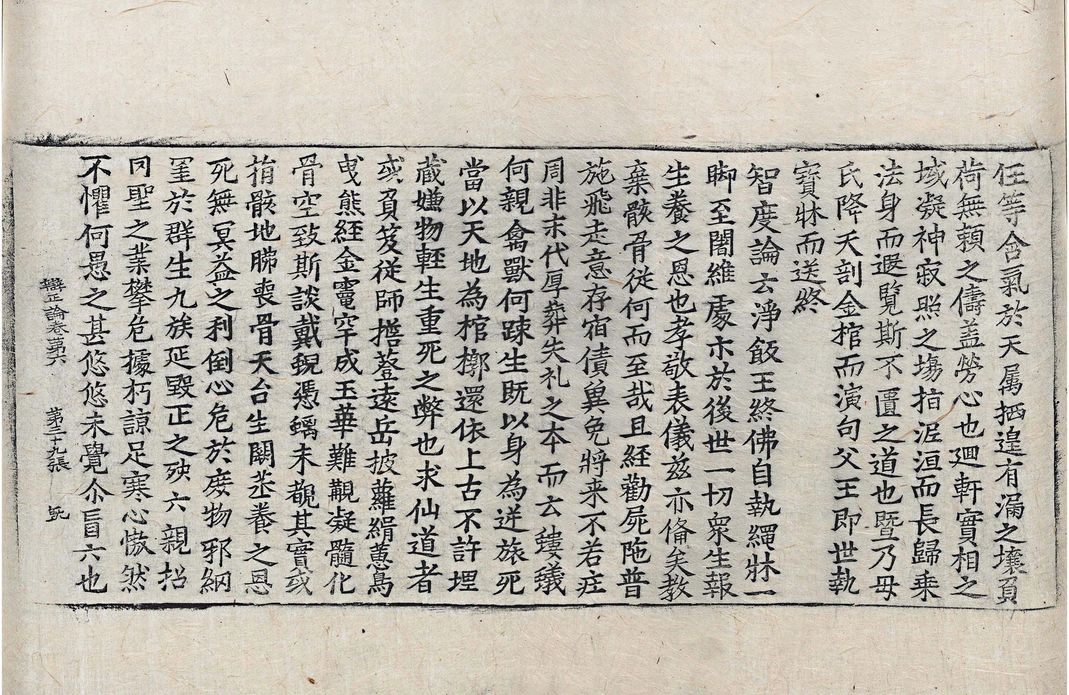 任等含氣於天属抷遑有漏之壤負
荷無賴之儔盖勞心也迴軒實相之
域凝神寂照之塲指涅洹而長歸乗
法身而遐覽斯不匱之道也暨乃母
氏降天剖金棺而演句父王即世執
寳牀而送終
智度論云淨飯王終佛自執繩牀一
脚至闍維處尒於後世一切衆生報
生養之恩也孝敬表儀兹亦備矣教
棄骸骨從何而至哉且経勸屍陁普
施飛走意存宿債兾免將来不若症
周非末代厚葬失礼之本而云螻蟻
何親禽獸何踈生既以身為逆旅死
當以天地為棺槨還依上古不許埋
蔵嫌物輊生重死之弊也求仙道者
或負笈從師擔簦遠岳披蘿緝蕙鳥
曳熊経金竈罕成玉華難觀凝髓化
骨空致斯談戴蜺憑螭未覩其實或
捐骸地肺喪骨天台生闕烝養之恩
死無冥益之利倒心危於庶物邪網
罣於群生九族延毀正之殃六親招
冈聖之業攀危據朽諒足寒心傲然
不懼何愚之甚悠悠未覺尒盲六也
辯正論卷苐六　苐三十九張　旣